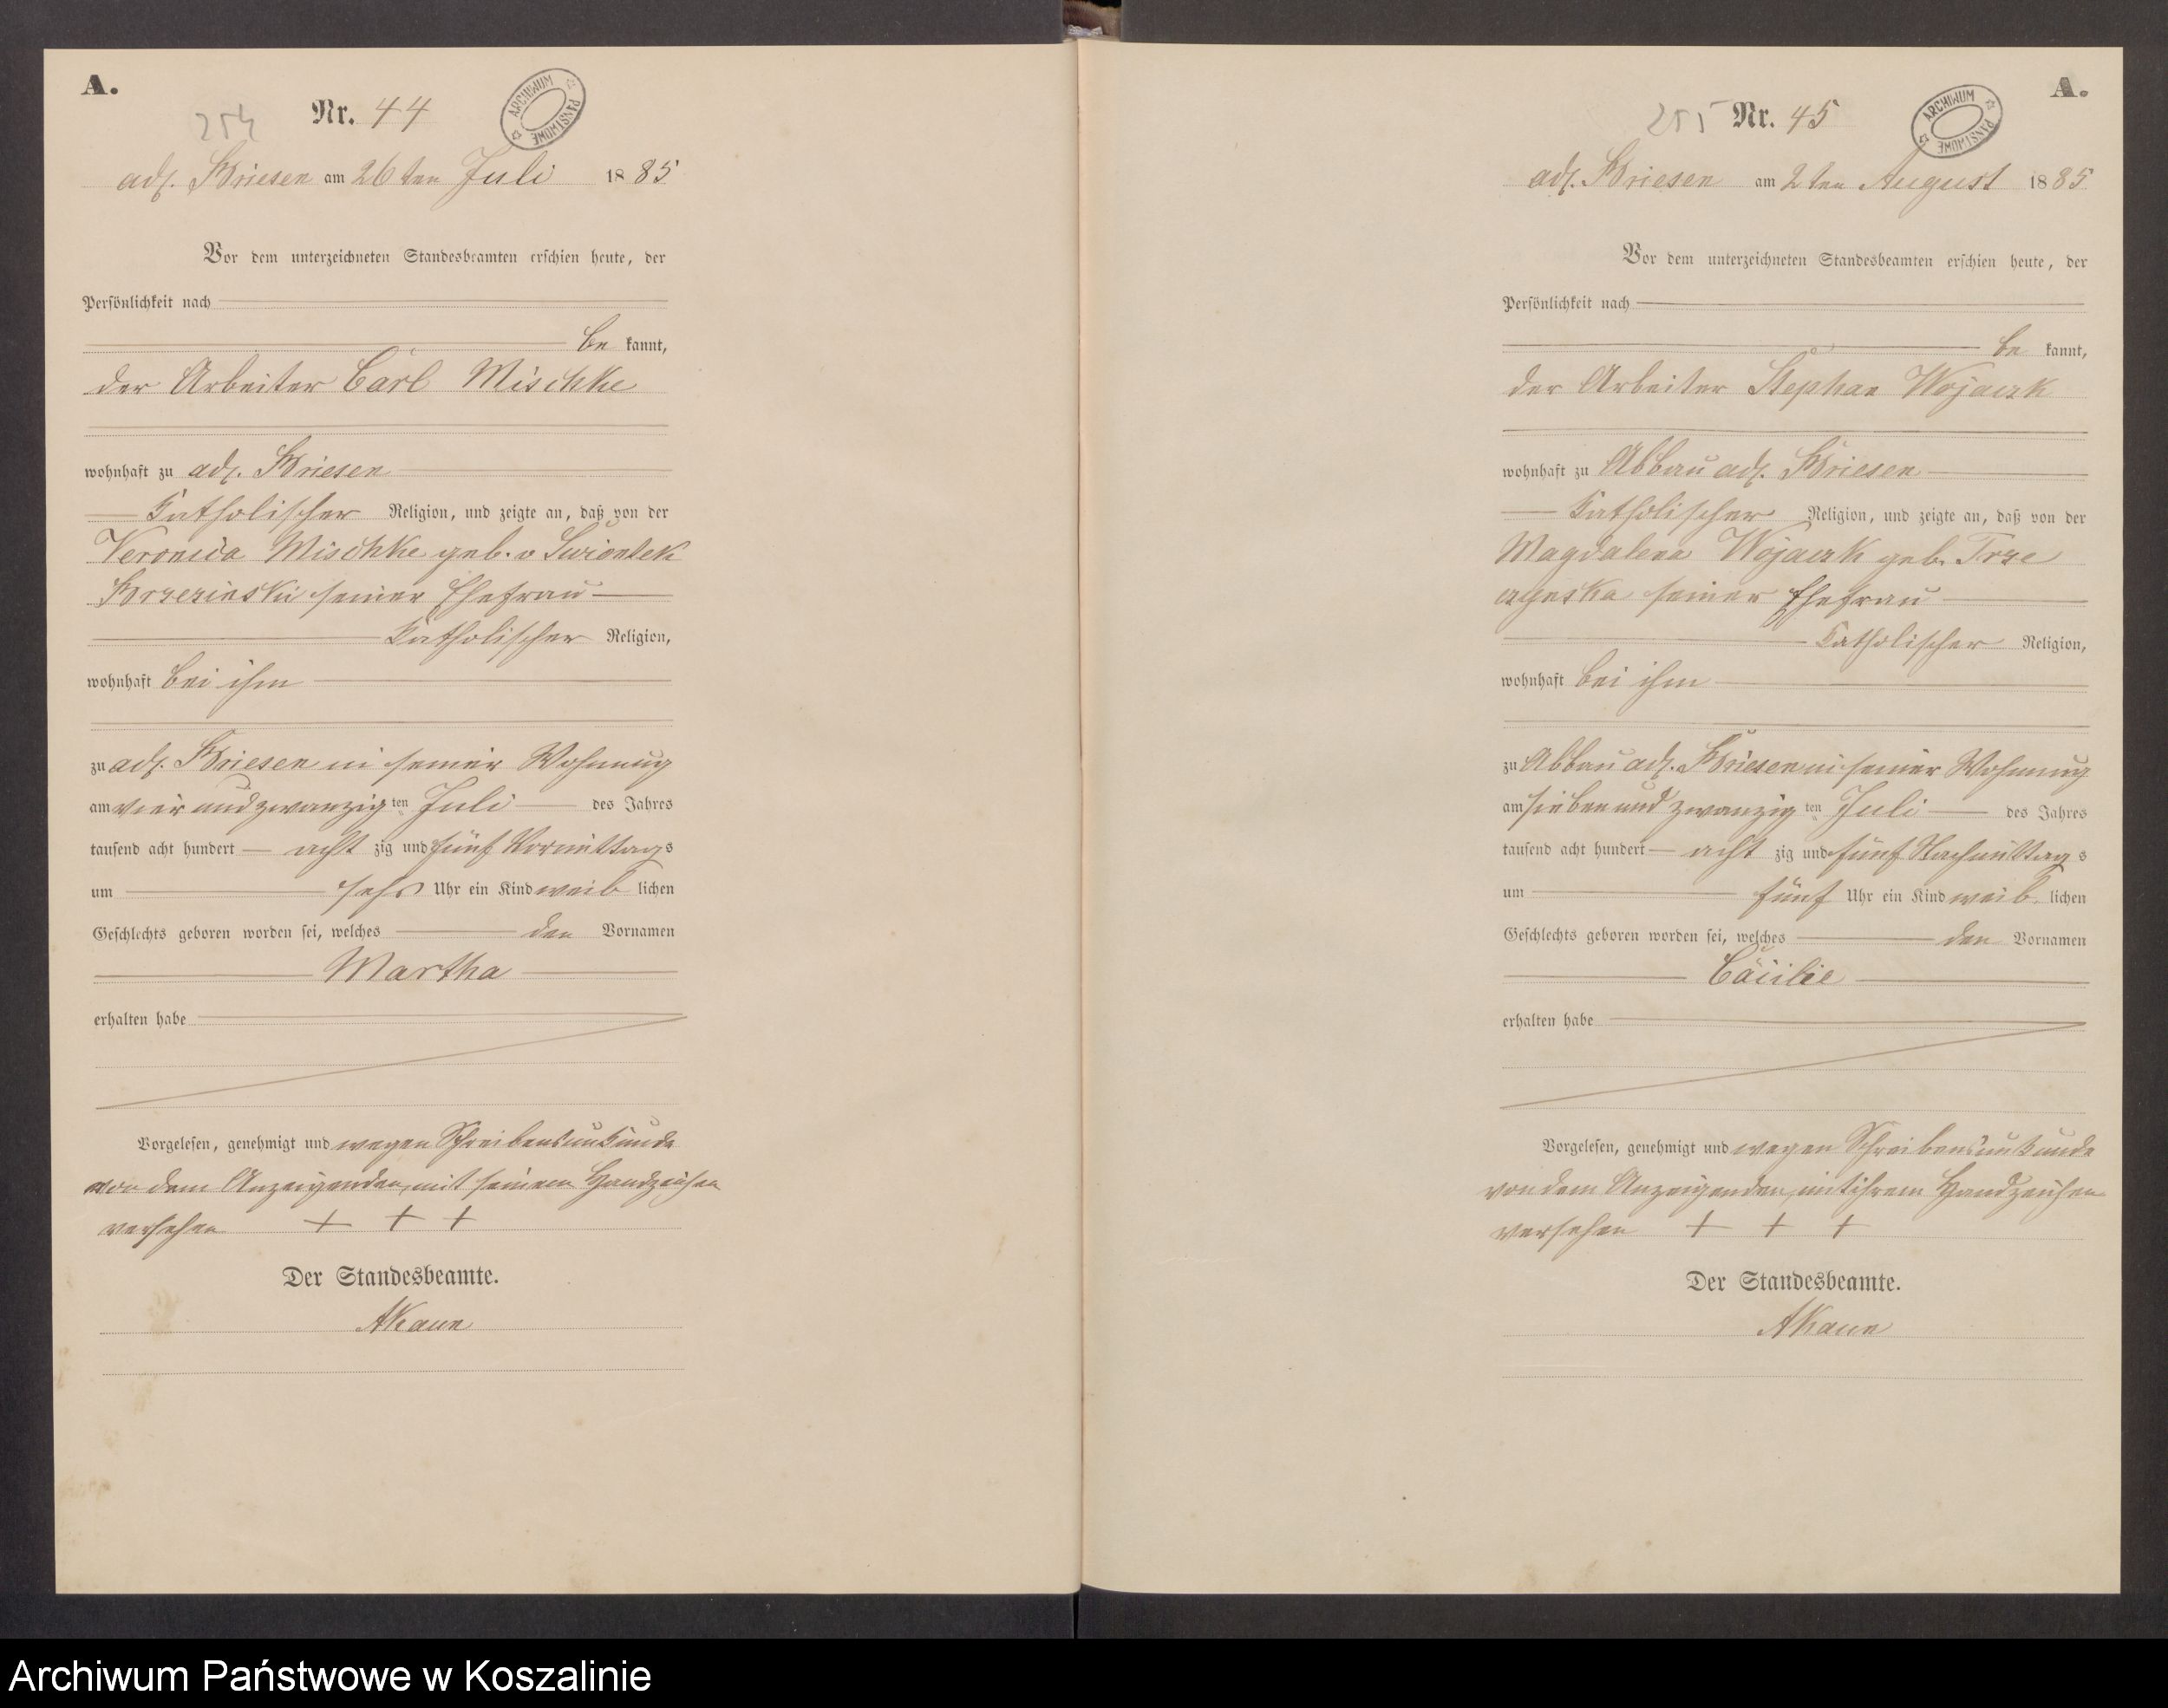 A.
254 Nr. 44
ARCHIWUM PAŃSTWOWE
adl. Briesen am 26ten Juli 1885
Vor dem unterzeichneten Standesbeamten erschien heute, der
Persönlichkeit nach
be kannt,
der Arbeiter Carl Mischke
wohnhaft zu adl. Briesen
Katholischer Religion, und zeigte an, daß von der
Veronica Mischke geb. v
Brzezinski seiner Ehefrau
Katholischer Religion,
wohnhaft bei ihm
zu adl. Briesen in seiner Wohnung
am vier und zwanzig ten Juli des Jahres
tausend acht hundert acht zig und fünf Vormittags
um sechs Uhr ein Kind weib lichen
Geschlechts geboren worden sei, welches den Vornamen
Martha
erhalten habe
Vorgelesen, genehmigt und wegen Schreibensunkunde
von dem Anzeigenden, mit seinem Handzeichen
versehen + + +
Der Standesbeamte.
A.
255 Nr. 45
ARCHIWUM PAŃSTWOWE
adl. Briesen am 2ten August 1885
Vor dem unterzeichneten Standesbeamten erschien heute, der
Persönlichkeit nach
be kannt,
der Arbeiter Stephan Wojaczk
wohnhaft zu Abbau adl. Briesen
Katholischer Religion, und zeigte an, daß von der
Magdalena Wojaczk geb.
seiner Ehefrau
Katholischer Religion,
wohnhaft bei ihm
zu Abbau adl. Briesen in seiner Wohnung
am sieben und zwanzig ten Juli des Jahres
tausend acht hundert acht zig und fünf Nachmittags
um fünf Uhr ein Kind weib lichen
Geschlechts geboren worden sei, welches den Vornamen
Cäcilie
erhalten habe
Vorgelesen, genehmigt und wegen Schreibensunkunde
von dem Anzeigenden, mit ihrem Handzeichen
versehen + + +
Der Standesbeamte.
Archiwum Państwowe w Koszalinie